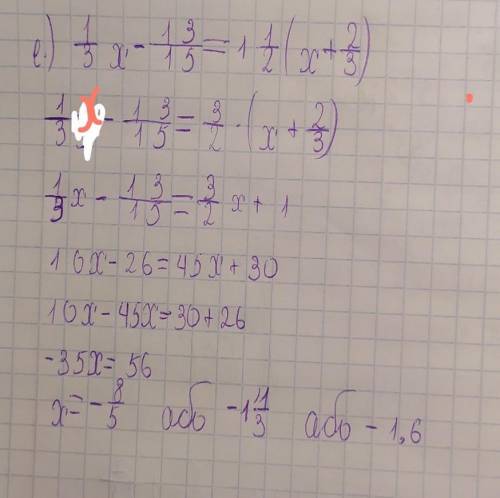 е.) 1/3 х - 13/15 = 1 1/2 (х + 2/3)
1/3 х - 13/15 = 3/2 · (х + 2/3)
1/3 х - 13/15 = 3/2 х + 1
10х - 26 = 45х + 30
10х - 45х = 30 + 26
-35х = 56
х = - 8/5 або -1 4/3 або - 1,6